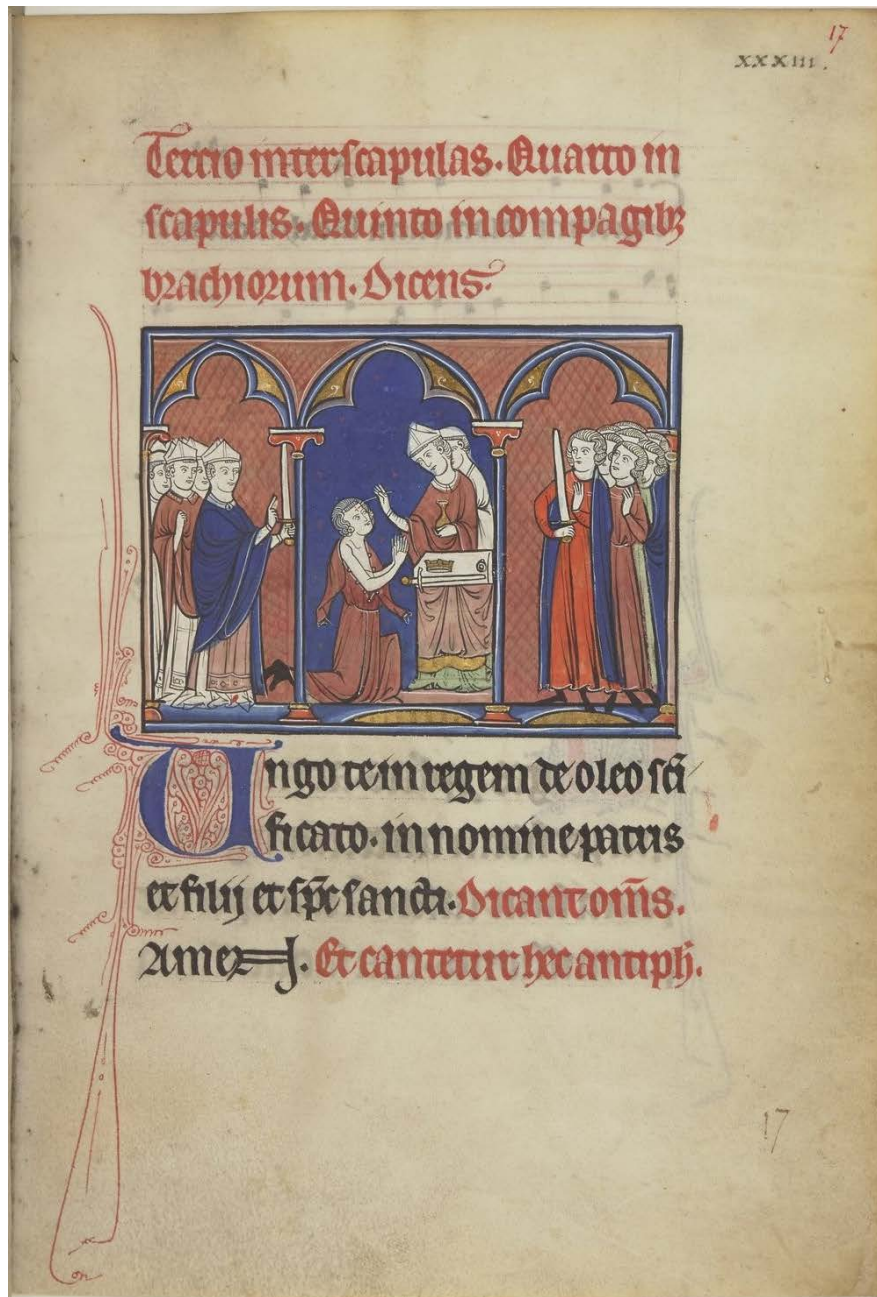 17
xxxiii.
Tercio inter scapulas. Quarto in
scapulis. Quinto in compagibꝫ
brachiorum. Dicens.
Ungo te in regem de oleo sc̃i
ficato. in nomine patris
et filij et sp̃c sancti. Dicant om̃s.
Amen. Et cantetur hec antiph̃.
17